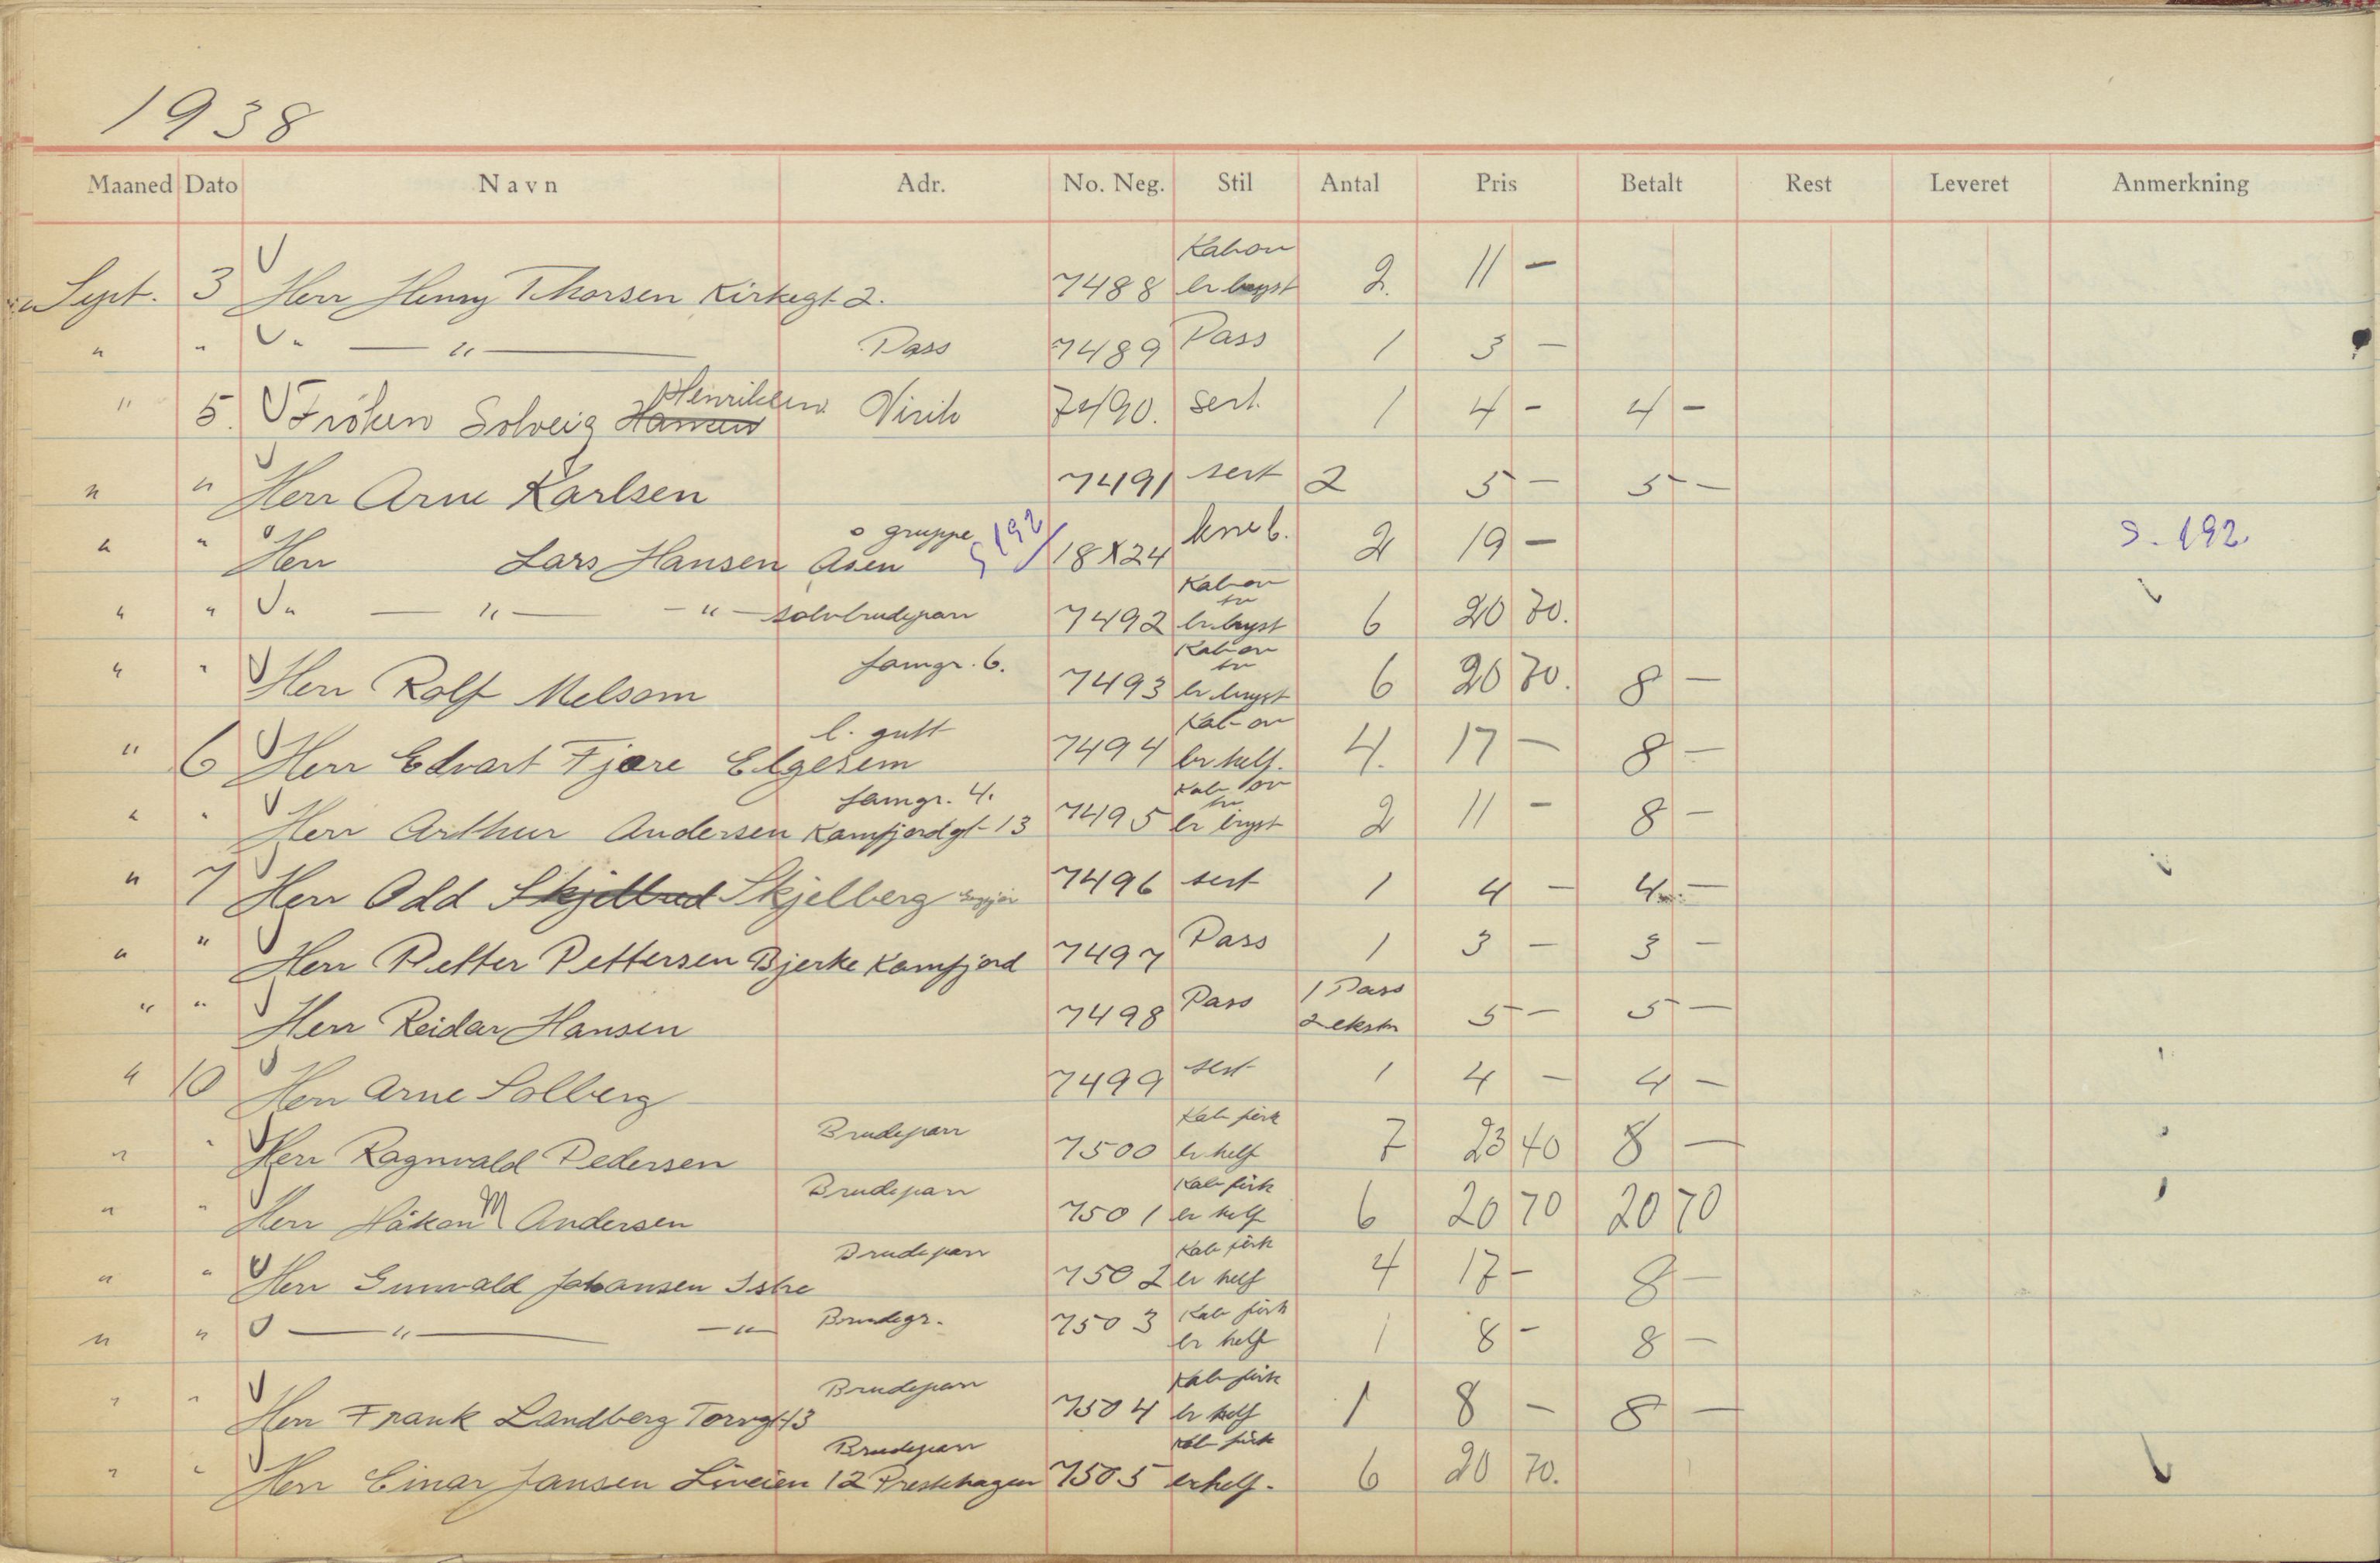 1938
Maaned Dato Navn Adr. No. Neg. Stil Antal Pris Betalt Rest Leveret Anmerkning
Kab ov
Sept. 3 Herr Henry Thorsen Kirkegt. 2. 7488 br bryst 2. 11 —
" " " — " — Pass 7489 Pass 1 3 —
" 5. Fröken Solveig Hansen Henriksen Virik 7490. sert. 1 4 - 4 -
" " Herr Arne Karlsen 7491 sert 2 5 — 5 —
gruppe S 192
" " Herr Lars Hansen Åsen 18X24 kneb. 2 19 — S. 192.
Kab ov
" " " — " — — " — sølvbrudepar 7492 br. bryst 6 20 70.
famgr. 6. Kab ov
" " Herr Rolf Melsom 7493 br bryst 6 20 70. 8 —
l. gutt Kab ov
" 6 Herr Edvart Fjære Elgesem 7494 br helf. 4. 17 — 8 —
famgr. 4. Kab ov
" " Herr Arthur Andersen Kamfjordgt 13 7495 br bryst 2 11 - 8 —
" 7 Herr Odd Skjelbred Skjelberg 7496 sert 1 4 — 4 —
" " Herr Petter Pettersen Bjerke Kamfjord 7497 Pass 1 3 — 3 —
" " Herr Reidar Hansen 7498 Pass 1 Pass 2 ekstr 5 — 5 —
" 10 Herr Arne Solberg 7499 sert 1 4 — 4 —
Brudepar Kab firk
" " Herr Ragnvald Pedersen 7500 br. helf 7 23 40 8 —
Brudepar Kab firk
" " Herr Håkon M Andersen 7501 br helf 6 20 70 20 70
Brudepar Kab firk
" " Herr Gunvald Johansen Istre 7502 br helf 4 17 - 8 —
" " — " — — " — Brudegr. 7503 Kab firk br helf 1 8 - 8 —
Brudepar Kab firk
" " Herr Frank Landberg Torvgt 13 7504 br helf 1 8 — 8 —
Brudepar Kab firk
" " Herr Einar Jansen Liveien 12 Prestehagen 7505 br helf. 6 20 70.